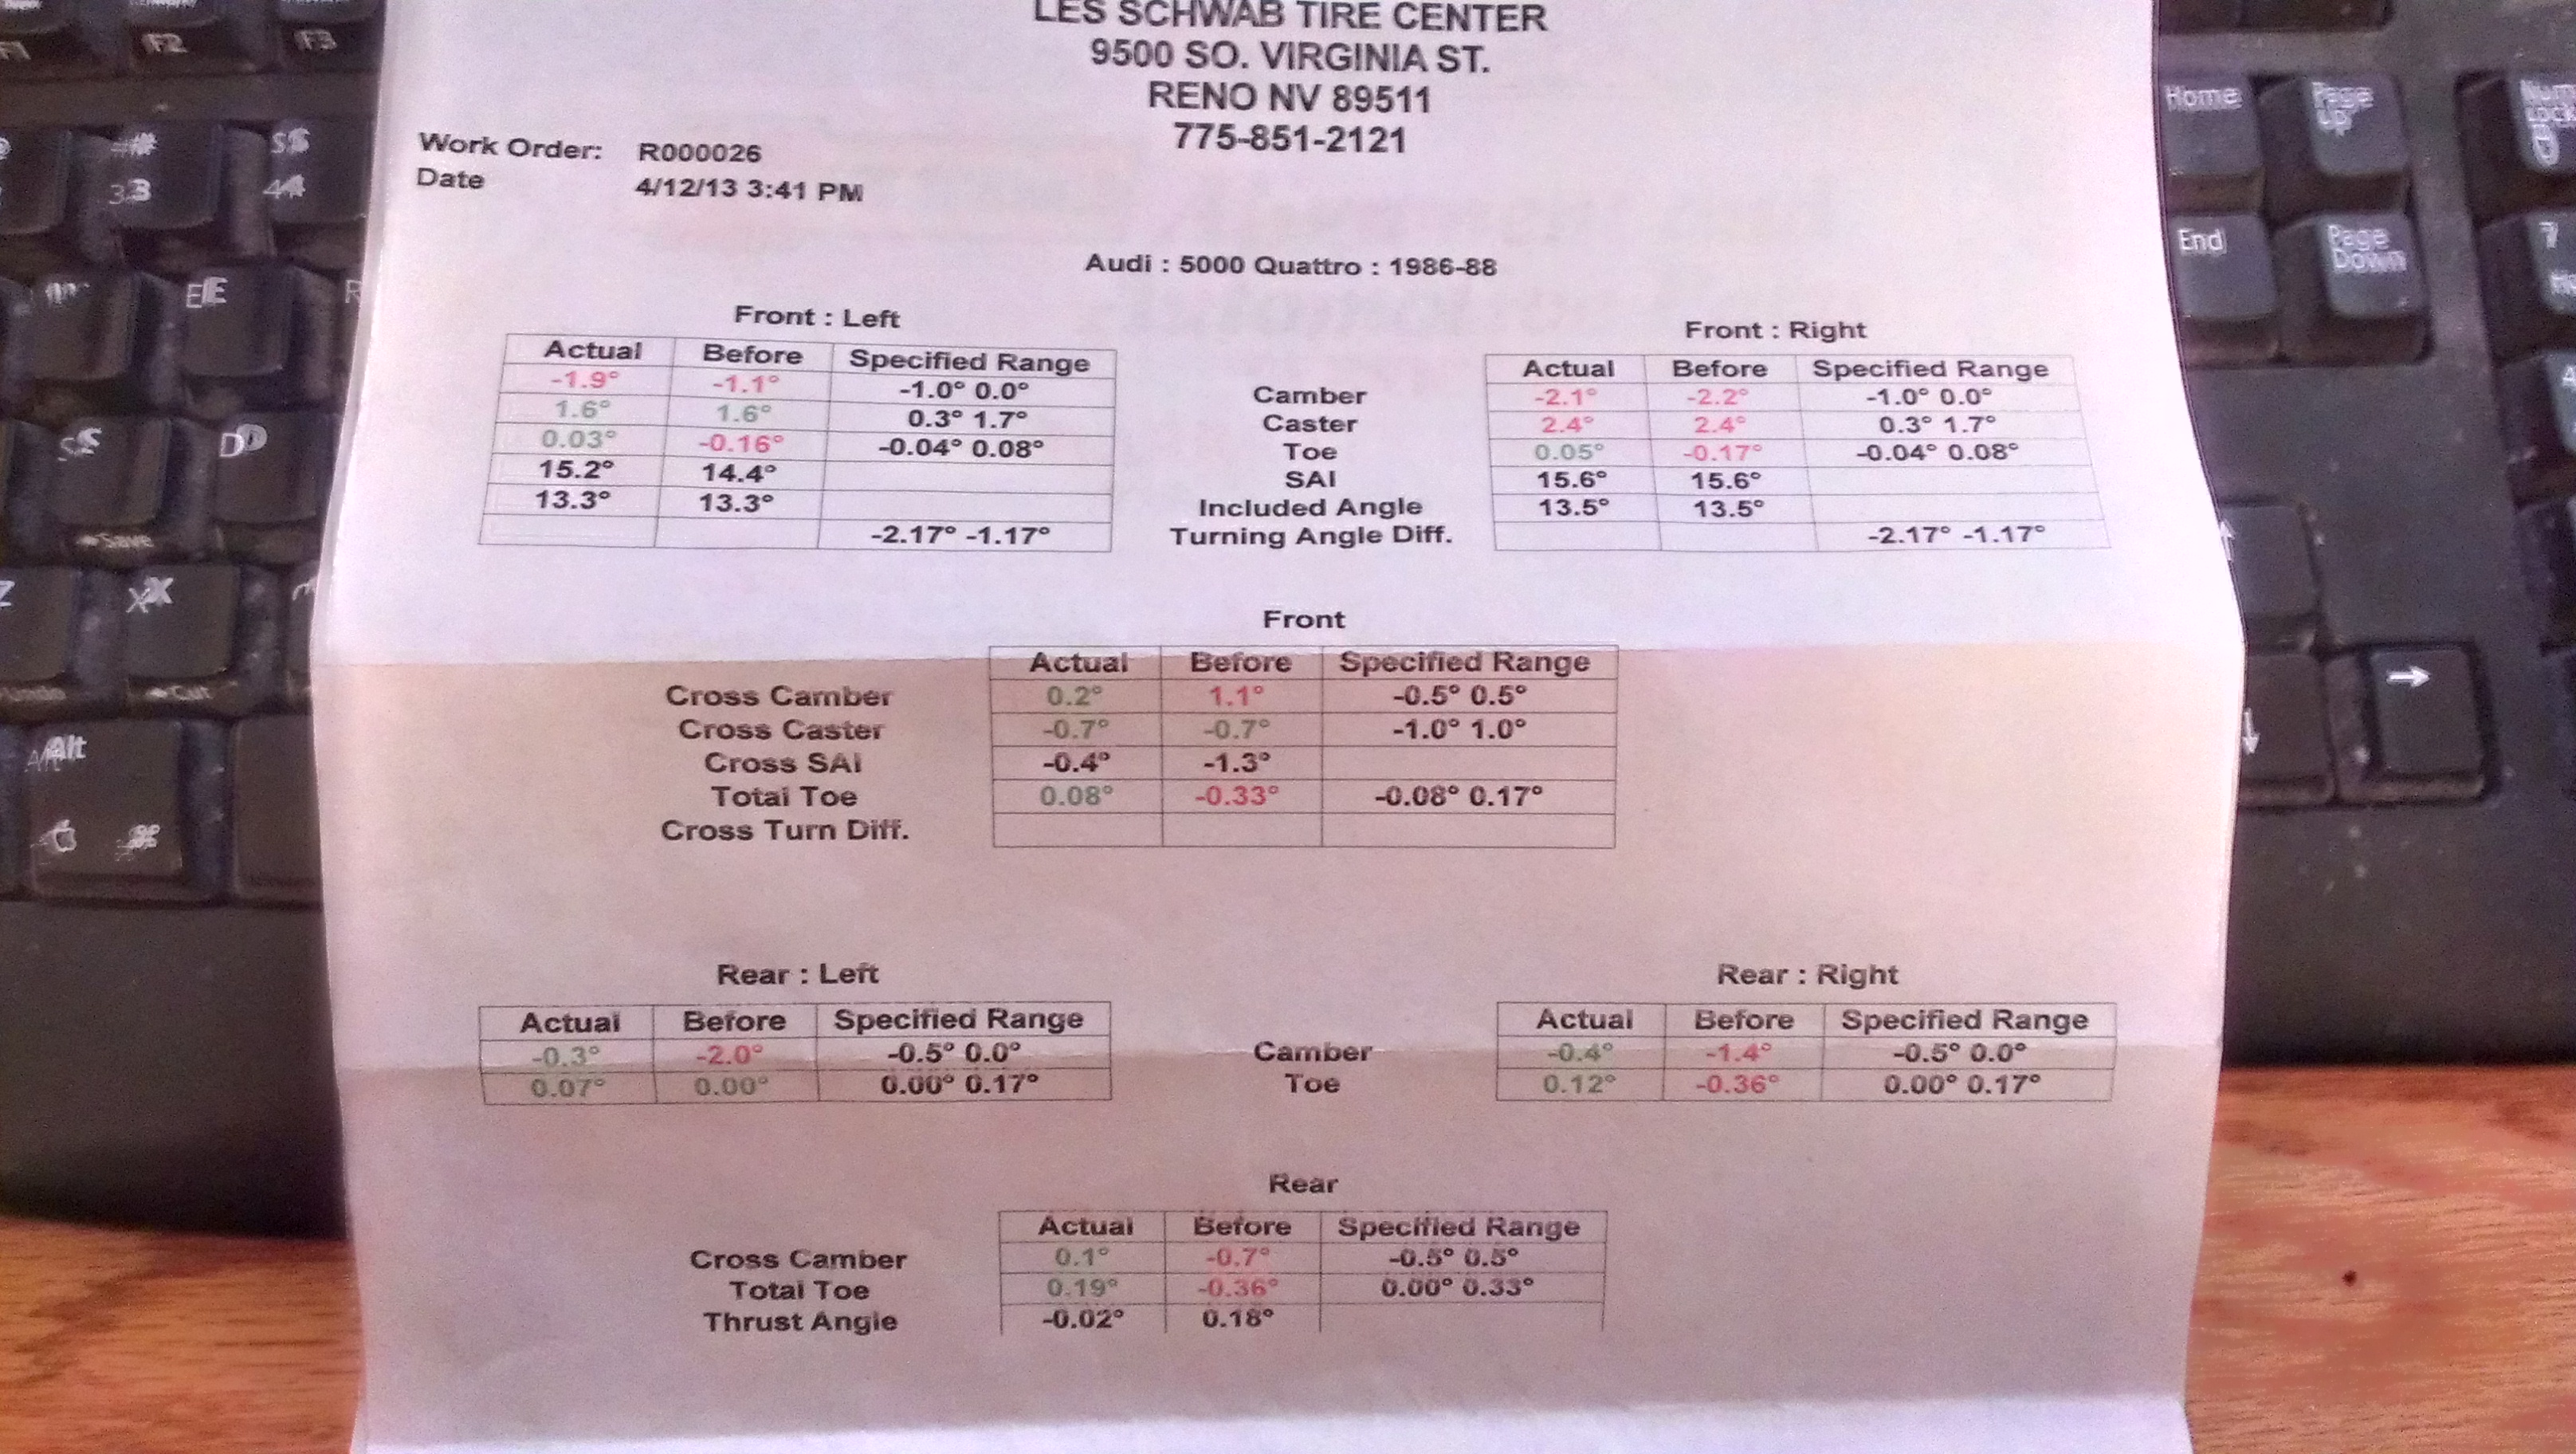 LES SCHWAB TIRE CENTER
9500 SO. VIRGINIA ST.
RENO NV 89511
775-851-2121
Work Order: R000026
Date 4/12/13 3:41 PM
Audi : 5000 Quattro : 1986-88
Front : Left
Actual Before Specified Range
-1.9° -1.1° -1.0° 0.0°
1.6° 1.6° 0.3° 1.7°
0.03° -0.16° -0.04° 0.08°
15.2° 14.4°
13.3° 13.3°
-2.17° -1.17°
Camber
Caster
Toe
SAI
Included Angle
Turning Angle Diff.
Front : Right
Actual Before Specified Range
-2.1° -2.2° -1.0° 0.0°
2.4° 2.4° 0.3° 1.7°
0.05° -0.17° -0.04° 0.08°
15.6° 15.6°
13.5° 13.5°
-2.17° -1.17°
Front
Actual Before Specified Range
Cross Camber 0.2° 1.1° -0.5° 0.5°
Cross Caster -0.7° -0.7° -1.0° 1.0°
Cross SAI -0.4° -1.3°
Total Toe 0.08° -0.33° -0.08° 0.17°
Cross Turn Diff.
Rear : Left
Actual Before Specified Range
-0.3° -2.0° -0.5° 0.0°
0.07° 0.00° 0.00° 0.17°
Camber
Toe
Rear : Right
Actual Before Specified Range
-0.4° -1.4° -0.5° 0.0°
0.12° -0.36° 0.00° 0.17°
Rear
Actual Before Specified Range
Cross Camber 0.1° -0.7° -0.5° 0.5°
Total Toe 0.19° -0.36° 0.00° 0.33°
Thrust Angle -0.02° 0.18°
F1
F2
F3
#
3
$
4
E
R
S
D
Save
Z
X
Cut
Alt
⌘
Home
Page Up
Num Lock
End
Page Down
7
→
↓